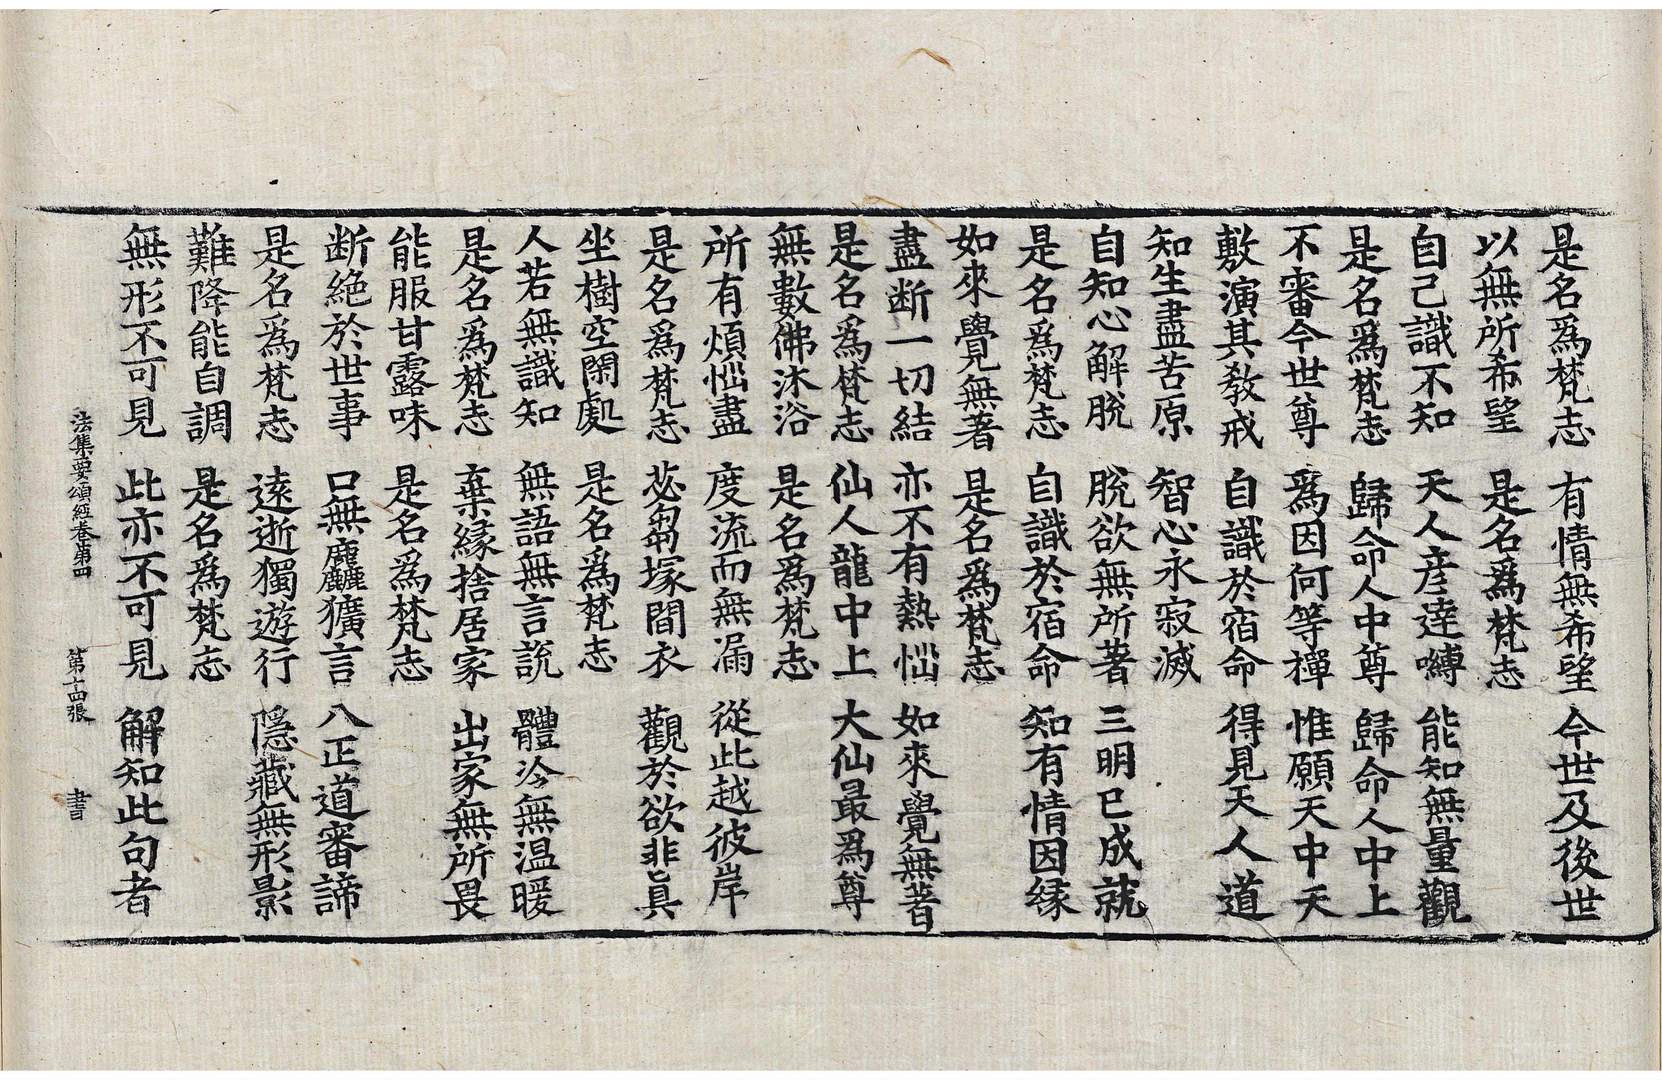 是名為梵志 有情無希望 今世及後世
以無所希望 是名為梵志
自己識不知 天人彦達嚩 能知無量觀
是名為梵志 歸命人中尊 歸命人中上
不審今世尊 為因何等禪 惟願天中天
敷演其教戒 自識於宿命 得見天人道
知生盡苦原 智心永寂滅
自知心解脫 脫欲無所著 三明已成就
是名為梵志 自識於宿命 知有情因緣
如來覺無著 是名為梵志
盡断一切結 亦不有熱惱 如來覺無著
是名為梵志 仙人龍中上 大仙最為尊
無數佛沐浴 是名為梵志
所有煩惱盡 度流而無漏 從此越彼岸
是名為梵志 苾芻塚間衣 觀於欲非真
坐樹空閑處 是名為梵志
人若無識知 無語無言說 體冷無温暖
是名為梵志 棄緣捨居家 出家無所畏
能服甘露味 是名為梵志
断絕於世事 口無麤獷言 八正道審諦
是名為梵志 遠逝獨遊行 隱藏無形影
難降能自調 是名為梵志
無形不可見 此亦不可見 解知此句者
法集要頌經卷第四 第十四張 書